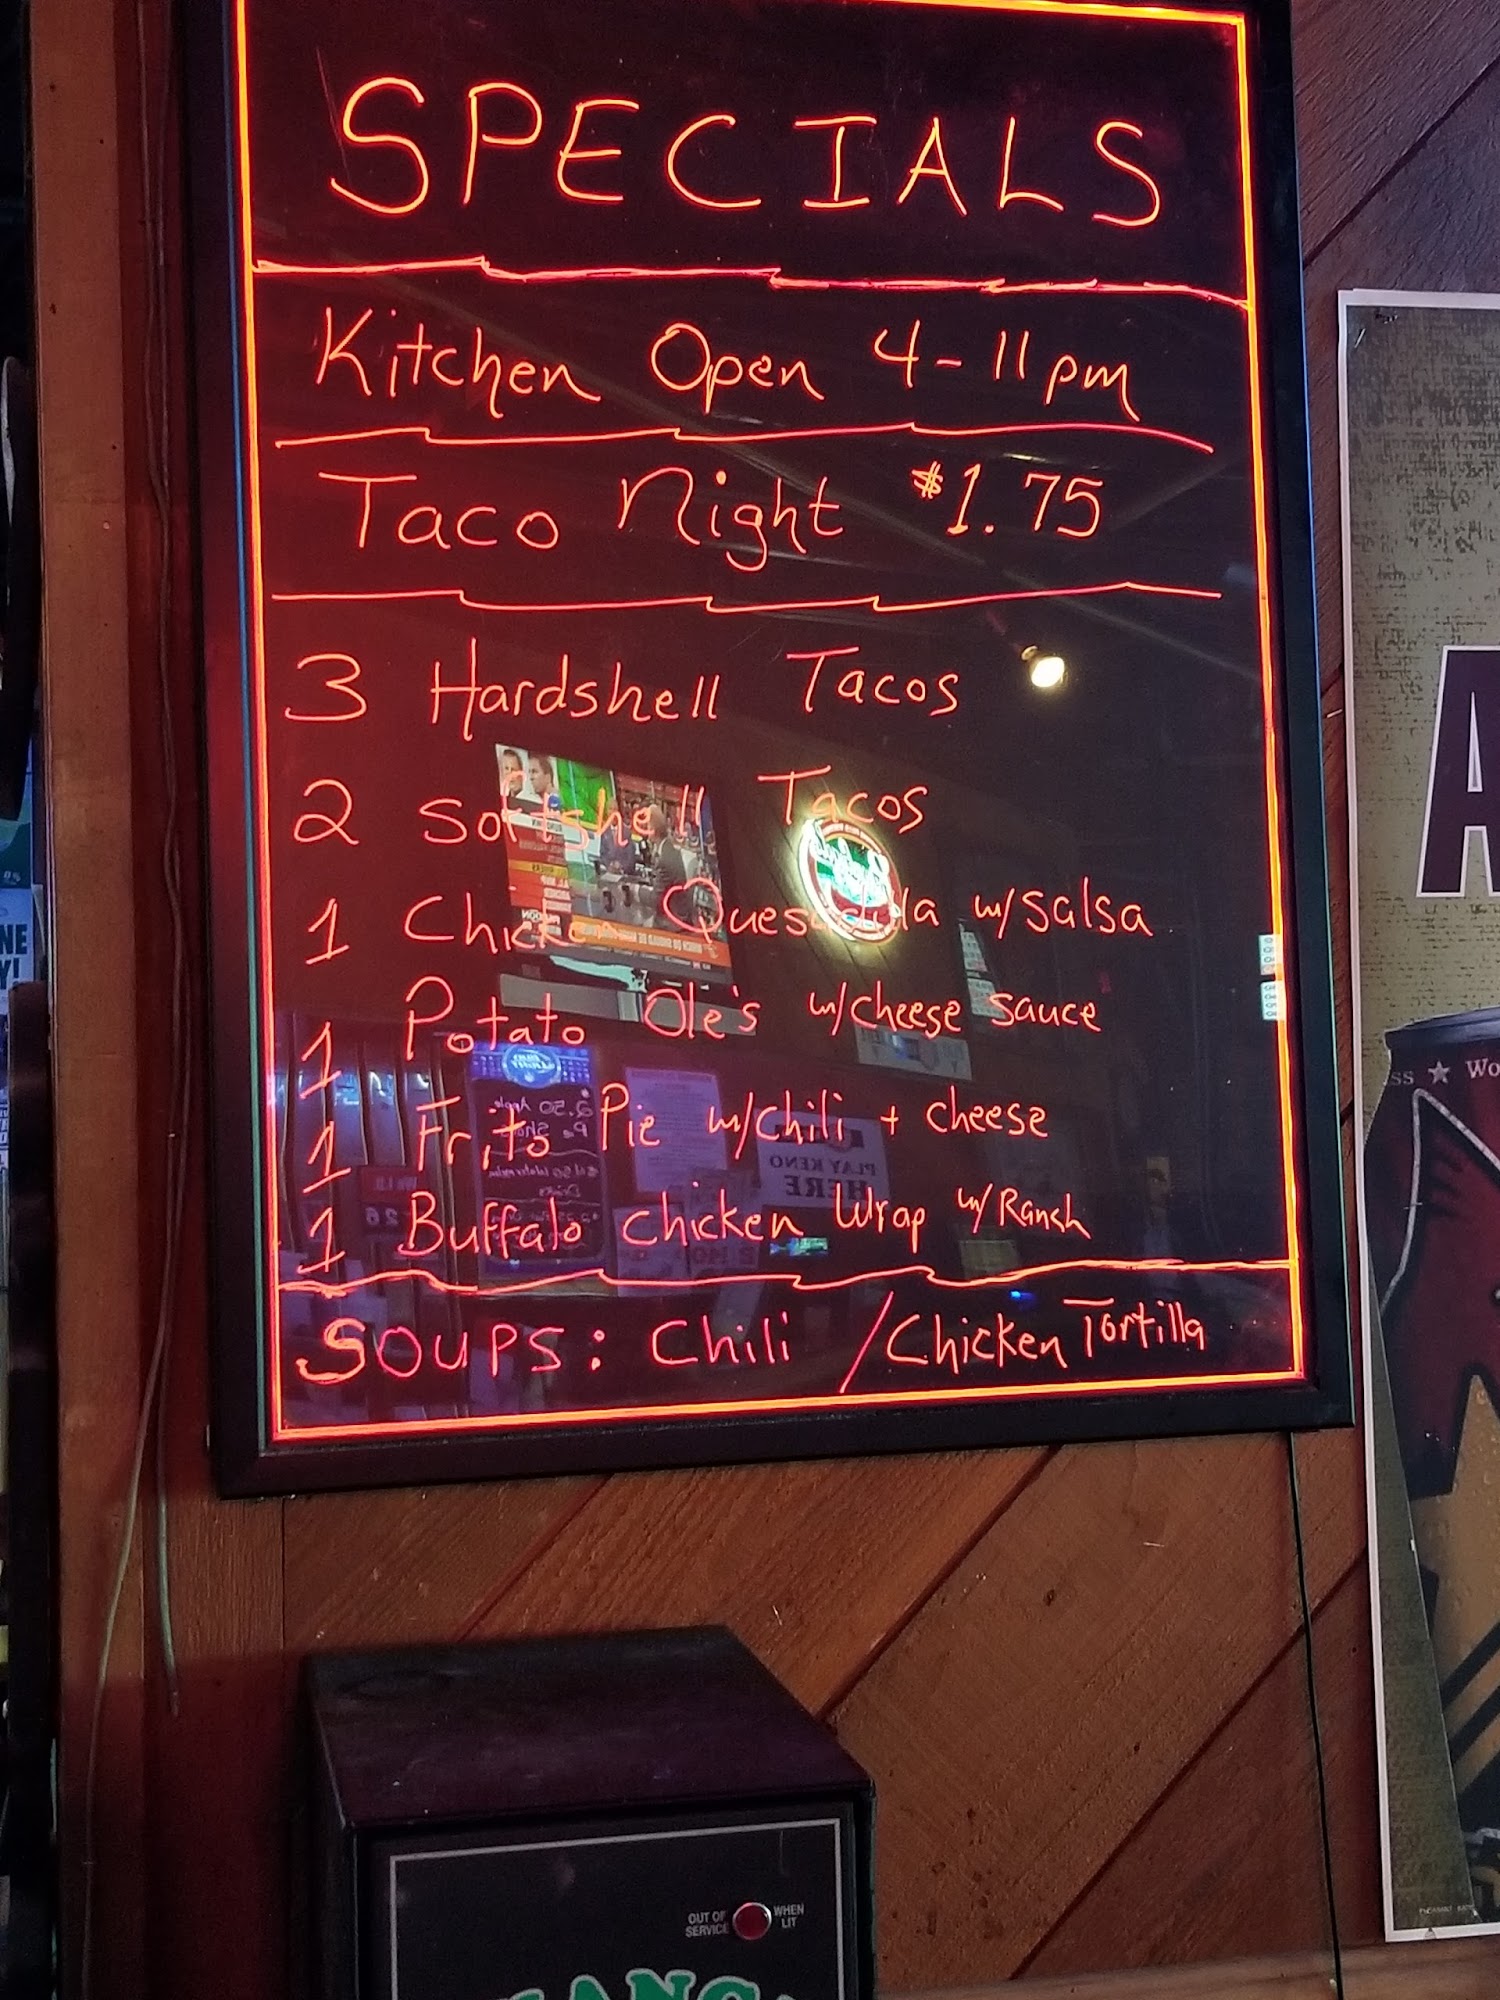 SPECIALS
Kitchen Open 4-11pm
Taco Night $1.75
3 Hardshell Tacos
2 Softshell Tacos
1 Chicken Quesadilla w/salsa
1 Potato Ole's w/cheese sauce
1 Frito Pie w/chili + cheese
1 Buffalo chicken Wrap w/Ranch
SOUPS: Chili / Chicken Tortilla
PLAY KENO
HERE
OUT OF
SERVICE
WHEN
LIT